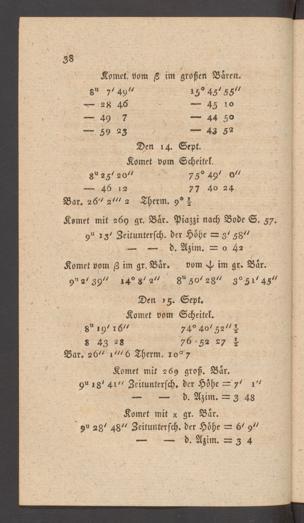 38
Komet vom β im großen Bären.
8ᵘ 7′ 49″ 15° 45′ 55″
— 28 46 — 45 10
— 49 7 — 44 50
— 59 23 — 43 52
Den 14. Sept.
Komet vom Scheitel.
8ᵘ 25′ 20″ 75° 49′ 0″
— 46 12 77 40 24
Bar. 26″ 2‴ 2 Therm. 9° ½
Komet mit 269 gr. Bär. Piazzi nach Bode S. 57.
9ᵘ 13′ Zeitunterſch. der Höhe = 3′ 58″
— — d. Azim. = 0 42
Komet vom β im gr. Bär. vom ψ im gr. Bär.
9ᵘ 2′ 39″ 14° 8′ 2″ 8ᵘ 50′ 28″ 3° 51′ 45″
Den 15. Sept.
Komet vom Scheitel.
8ᵘ 19′ 16″ 74° 40′ 52″ ½
8 43 28 76 52 27 ½
Bar. 26″ 1‴ 6 Therm. 10° 7
Komet mit 269 groß. Bär.
9ᵘ 18′ 41″ Zeitunterſch. der Höhe = 7′ 1″
— — d. Azim. = 3 48
Komet mit χ gr. Bär.
9ᵘ 28′ 48″ Zeitunterſch. der Höhe = 6′ 9″
— — d. Azim. = 3 4